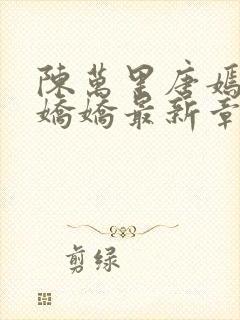 陳萬里唐嫣
嬌嬌最新章
剪绿